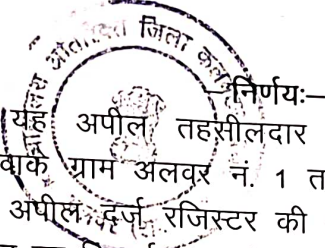 अतिरिक्त जिला
–निर्णयः–
यह अपील तहसीलदार
वाके ग्राम अलवर नं. 1 त
अपील दर्ज रजिस्टर की